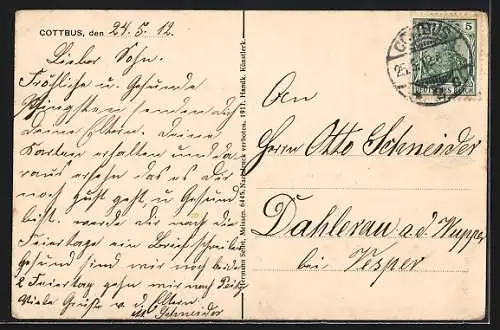 COTTBUS, den 24. 5. 12.
Lieber Sohn.
Fröhliche u. Gesunde
Pfingsten senden dir
deine Eltern. deine
Karten erhalten und da
raus ersehn das es dir
noch gut geht, u Gesund
bist. werde dir nach die
Feiertage ein Brief schreiben
gesund sind wir noch beide
2 Feiertag gehn wir nach Peitz
Viele Grüße v. d. Eltern
Schneider
Hermann Seibt, Meissen. 6445. Nachdruck verboten. 1911. Handk. Künstlerk.
5
COTTBUS
DEUTSCHES REICH
An
Herrn Otto Schneider
Dahlerau a.d. Wupper
bei Vesper